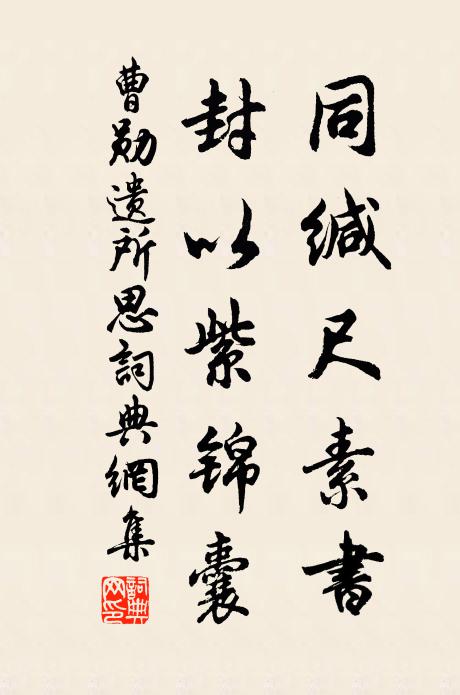 同缄尺素書
封以紫锦囊
曹勋遗所思詞典網集
詞典网印